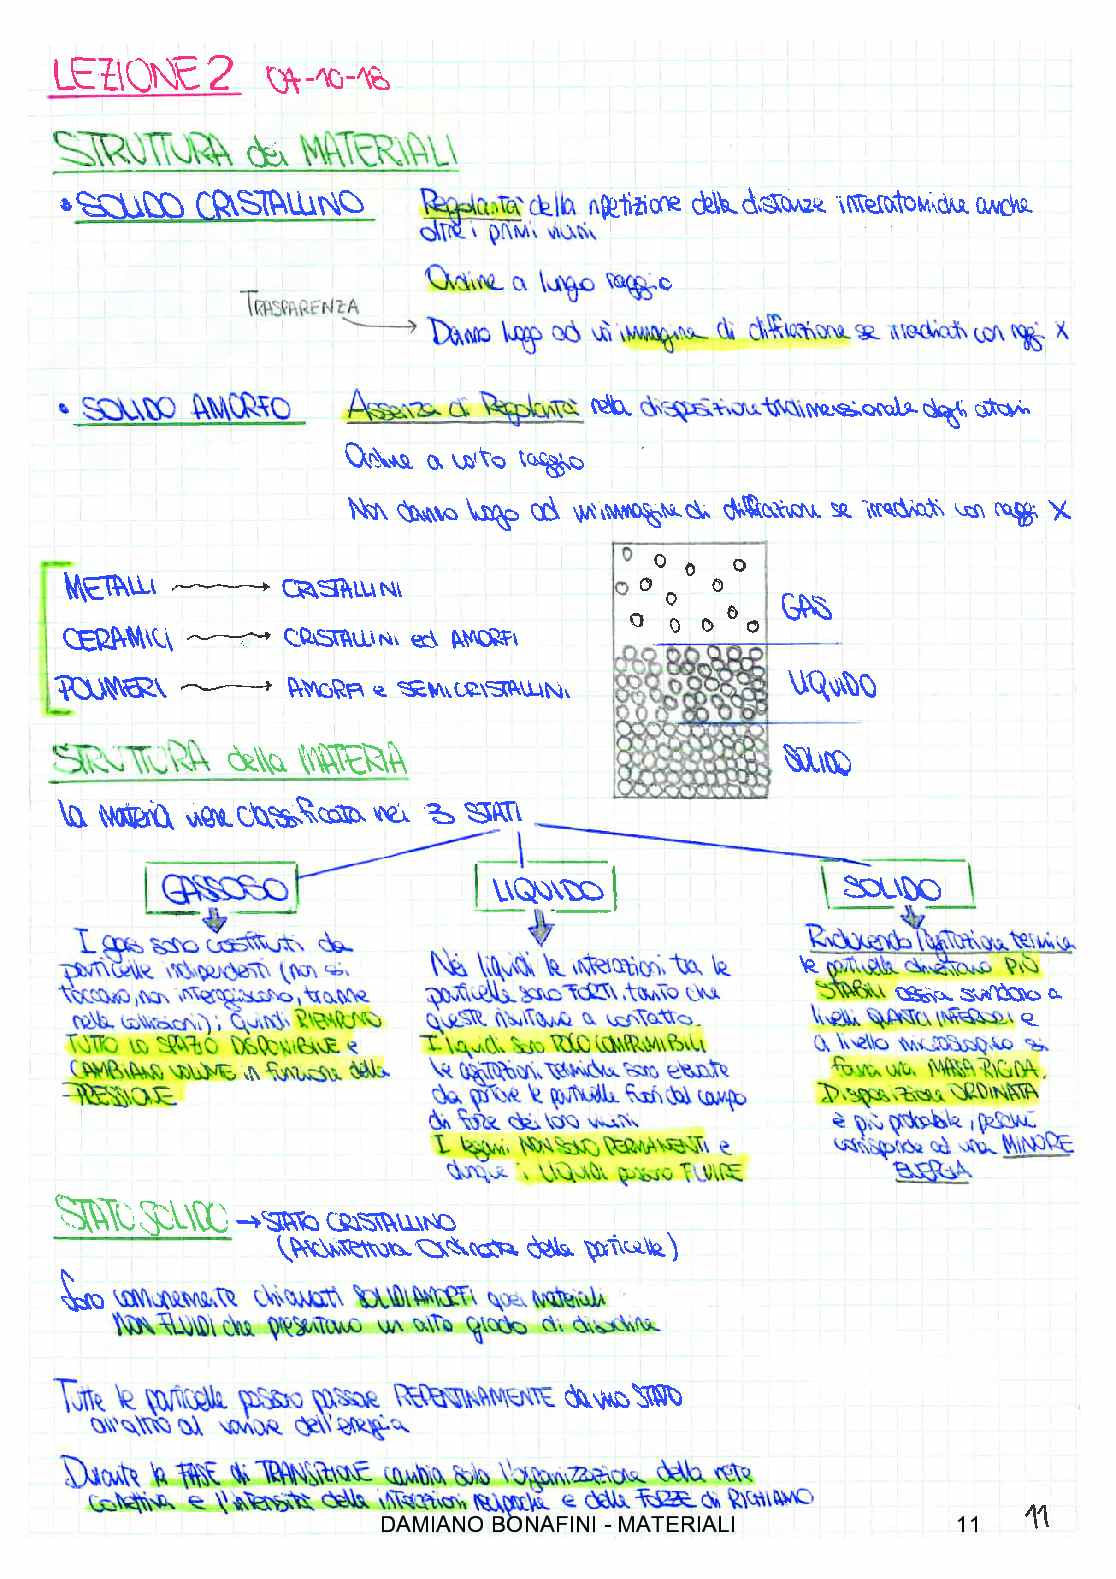 LEZIONE 2 04-10-18
STRUTTURA dei MATERIALI
• SOLIDO CRISTALLINO Regolarità della ripetizione delle distanze interatomiche anche
oltre i primi vicini
Ordine a lungo raggio
TRASPARENZA
Danno luogo ad un'immagine di diffrazione se irradiati con raggi X
• SOLIDO AMORFO Assenza di Regolarità nella disposizione tridimensionale degli atomi
Ordine a corto raggio
Non danno luogo ad un'immagine di diffrazione se irradiati con raggi X
METALLI → CRISTALLINI
CERAMICI → CRISTALLINI ed AMORFI
POLIMERI → AMORFI e SEMICRISTALLINI
GAS
LIQUIDO
SOLIDO
STRUTTURA della MATERIA
la materia viene classificata nei 3 STATI
GASSOSO
I gas sono costituiti da
particelle indipendenti (non si
toccano, non interagiscono, tranne
nelle collisioni); Quindi RIEMPIONO
TUTTO LO SPAZIO DISPONIBILE e
CAMBIANO VOLUME in funzione della
PRESSIONE
LIQUIDO
Nei liquidi le interazioni tra le
particelle sono FORTI, tanto che
queste risultano a contatto.
I liquidi sono POCO COMPRIMIBILI
Le agitazioni termiche sono elevate
da portare le particelle fuori dal campo
di forze dei loro vicini
I legami NON SONO PERMANENTI e
dunque i LIQUIDI possono FLUIRE
SOLIDO
Riducendo l'agitazione termica
le particelle diventano PIÙ
STABILI ossia scendono a
livelli QUANTICI INFERIORI e
a livello microscopico si
forma una MASSA RIGIDA.
Disposizione ORDINATA
è più probabile, perché
corrisponde ad una MINORE
ENERGIA
STATO SOLIDO → STATO CRISTALLINO
(Architettura Ordinata delle particelle)
Sono comunemente chiamati SOLIDI AMORFI quei materiali
NON FLUIDI che presentano un alto grado di disordine
Tutte le particelle possono passare REPENTINAMENTE da uno STATO
all'altro al variare dell'energia
Durante la FASE di TRANSIZIONE cambia solo l'organizzazione della rete
collettiva e l'intensità delle interazioni reciproche e delle FORZE di RICHIAMO
DAMIANO BONAFINI - MATERIALI 11 11